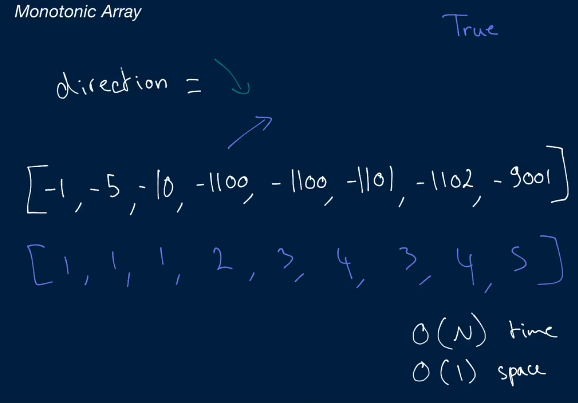 Monotonic Array
True
direction =
[-1, -5, -10, -1100, -1100, -1101, -1102, -9001]
[1, 1, 1, 2, 3, 4, 3, 4, 5]
O(N) time
O(1) space